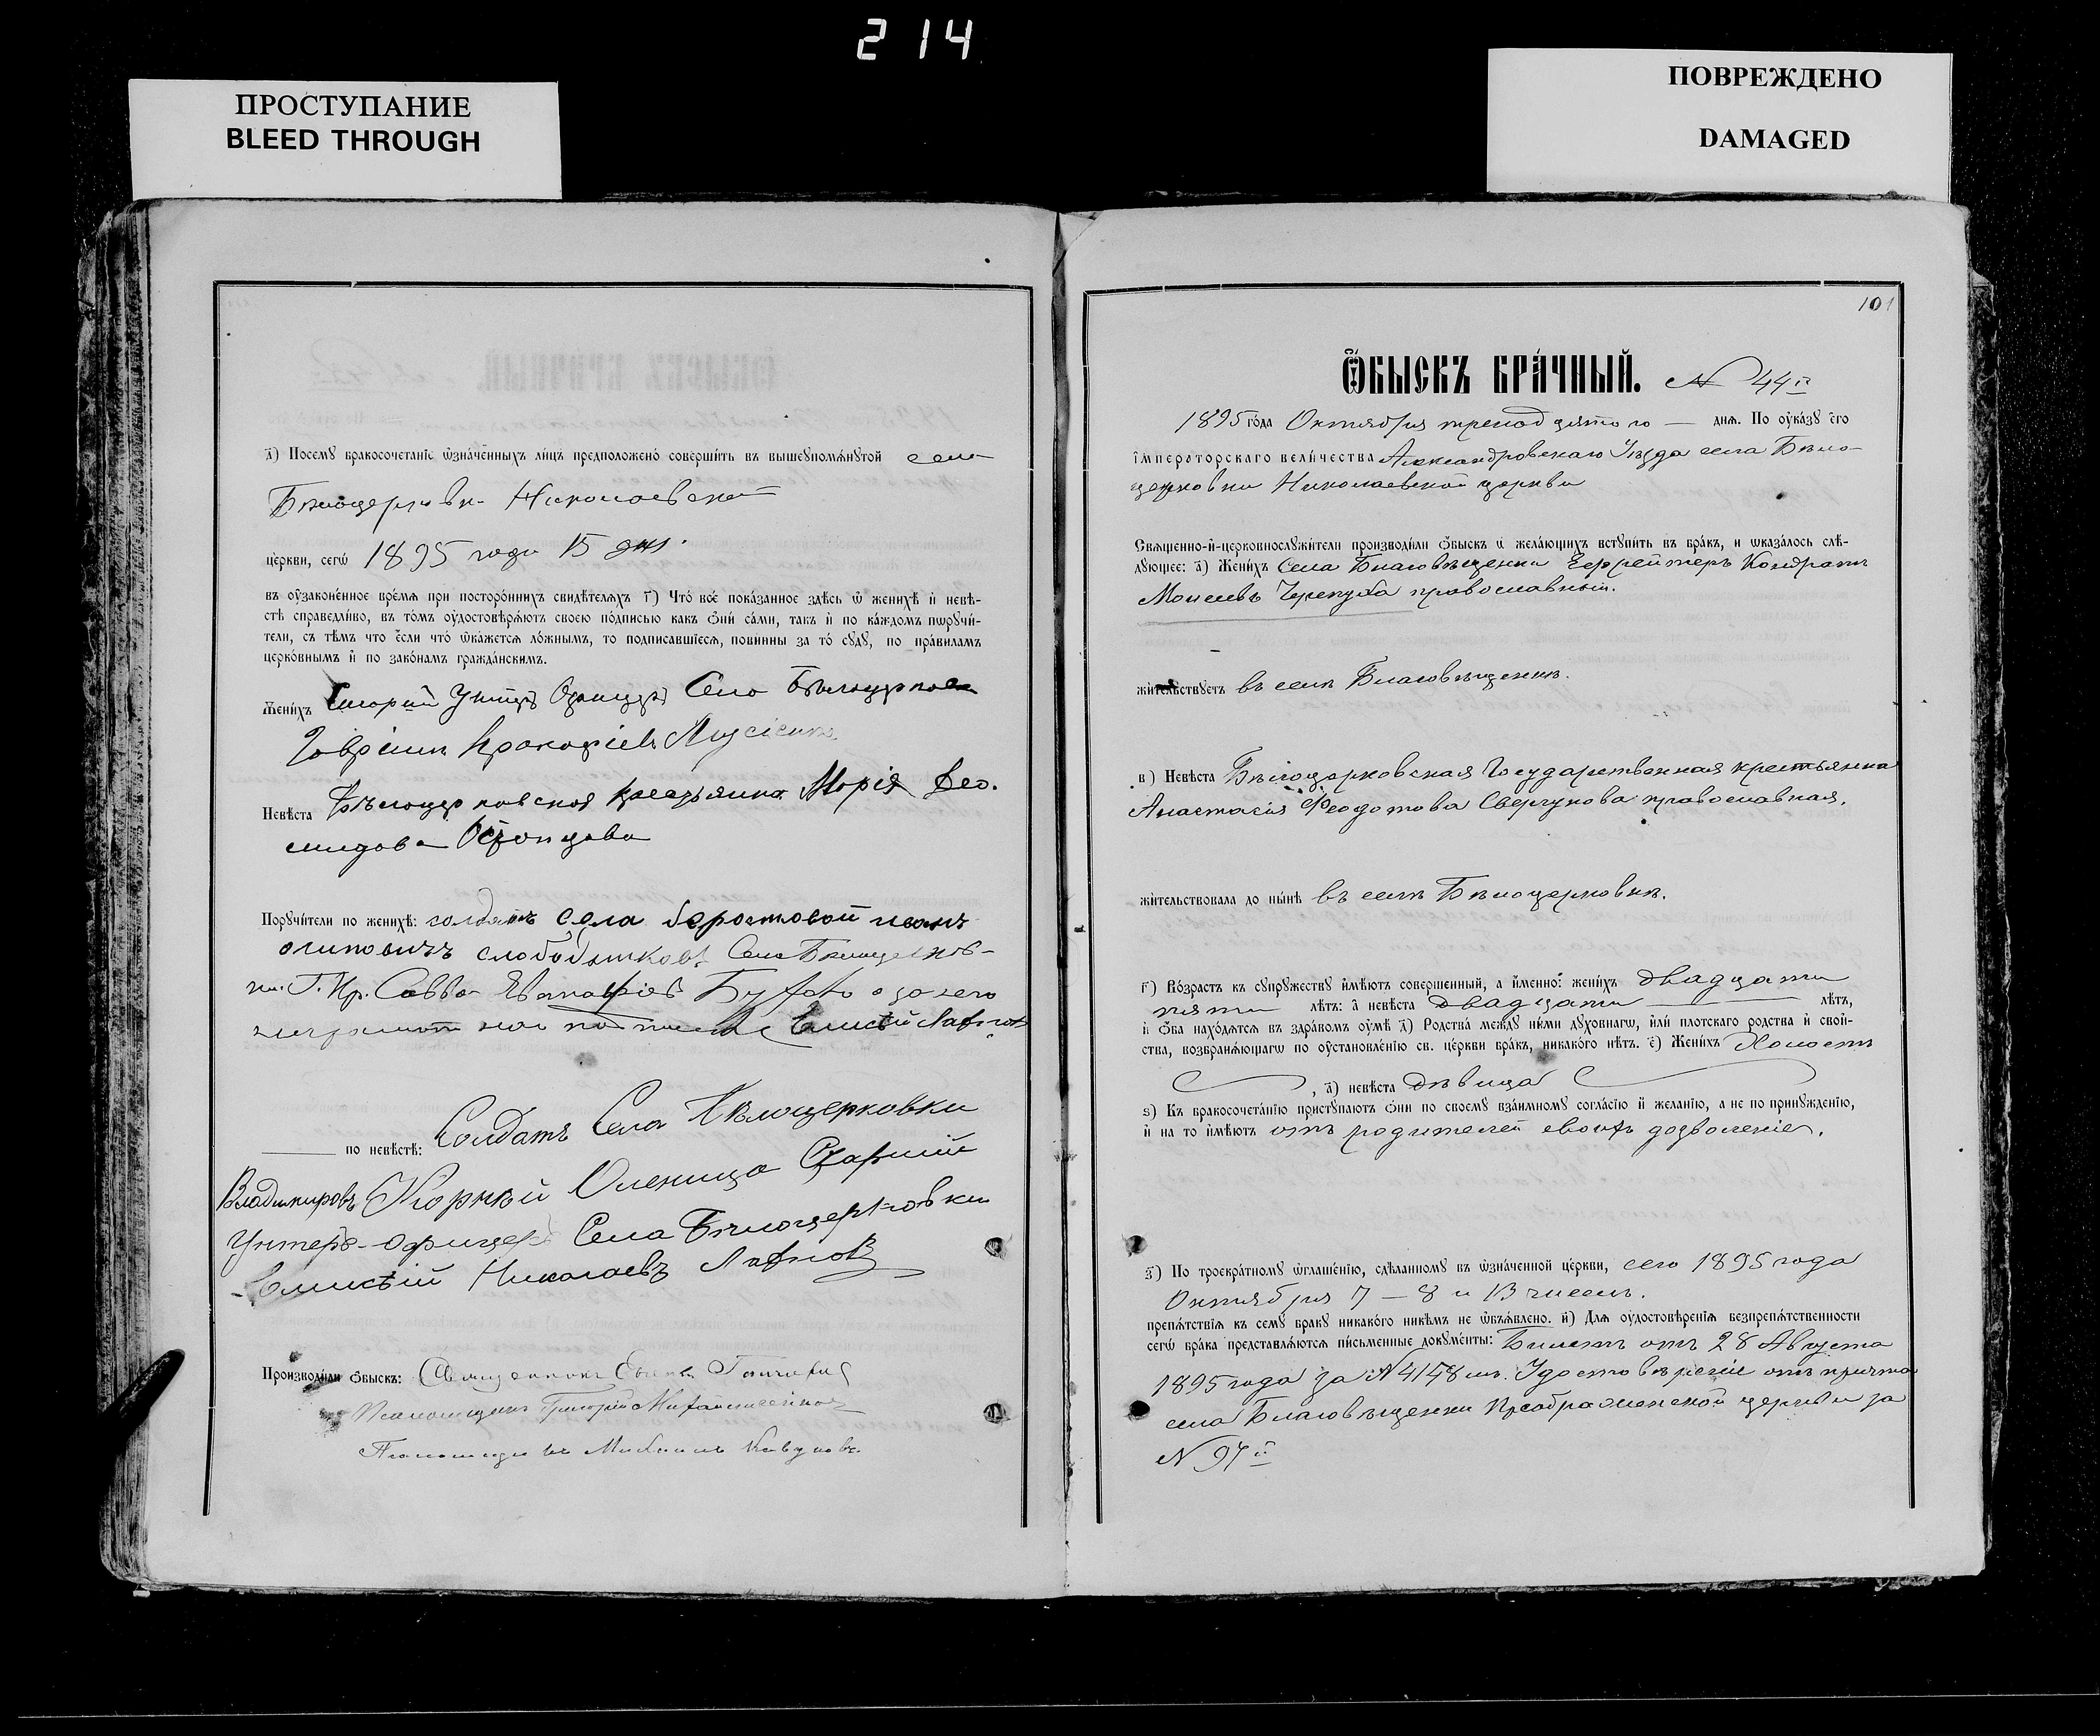 214
ПРОСТУПАНИЕ
BLEED THROUGH
ПОВРЕЖДЕНО
DAMAGED
д) Посему бракосочетаніе ѡзначенныхъ лицъ предположено совершить въ вышеупомянутой
Бѣлоцерковки Николаевской
церкви, сегѡ 1895 года 15 дня.
въ ѹзаконенное время при постороннихъ свидѣтеляхъ г) Что все показанное здѣсь ѡ женихѣ и невѣ-
стѣ справедливо, въ томъ ѹдостовѣряютъ своею подписью какъ ѻни сами, такъ и по каждомъ пѡручи-
тели, съ тѣмъ что если что ѡкажется ложнымъ, то подписавшіеся, повинны за то суду, по правиламъ
церковнымъ и по законамъ гражданскимъ.
Женихъ Село
Прокофіевъ
Невѣста Марія Део-
мидова
Поручители по женихѣ: солдатъ Села Берестовой иванъ
Села
Г. Кр. Савва
Елисѣй
по невѣстѣ: Солдатъ Села Бѣлоцерковки
Владимировъ Корнѣй Оленица Старшій
Унтеръ-офицеръ Села Бѣлоцерковки
Елисѣй Николаевъ
Производили ѻбыскъ: Священникъ
Псаломщикъ Григорій
Псаломщикъ Михаилъ
101
Ѻбыскъ брачный. № 44й
1895 года Октября тренадцятого — дня. По ѹказу его
императорскаго величества Александровскаго Уѣзда села Бѣло-
церковки Николаевской церкви
Священно-и-церковнослужители производили ѻбыскъ ѡ желающихъ вступить въ бракъ, и ѡказалось слѣ-
дующее: а) Женихъ Села Благовѣщенки Ефрейторъ Кондратъ
Моисеевъ Черепуха православный.
жительствуетъ въ селѣ Благовѣщенкѣ.
в) Невѣста Бѣлоцерковская Государственная крестьянка
Анастасія Феодотова Сверчкова православная.
жительствовала до нынѣ въ селѣ Бѣлоцерковкѣ.
г) Возрастъ къ супружеству имѣютъ совершенный, а именно: женихъ двадцати
пяти лѣтъ: а невѣста двадцати лѣтъ,
и ѻба находятся въ здравомъ ѹмѣ д) Родства между ними духовнагѡ, или плотскаго родства и свой-
ства, возбраняющагѡ по ѹстановленію св. церкви бракъ, никакого нѣтъ. е) Женихъ Холостъ
, а) невѣста дѣвица
ѕ) Къ бракосочетанію приступаютъ ѻни по своему взаимному согласію и желанію, а не по принужденію,
и на то имѣютъ отъ родителей своихъ дозволеніе.
з) По троекратному ѡглашенію, сдѣланному въ ѡзначенной церкви, сего 1895 года
Октября 7 — 8 и 13 чиселъ.
препятствія къ сему браку никакого никѣмъ не ѡбъявлено. и) Для ѹдостовѣренія безпрепятственности
сегѡ брака представляются письменные документы: Билетъ отъ 28 Августа
1895 года за № 4148мъ. Удостовѣреніе отъ причта
села Благовѣщенки Преображенской церкви за
№ 97й